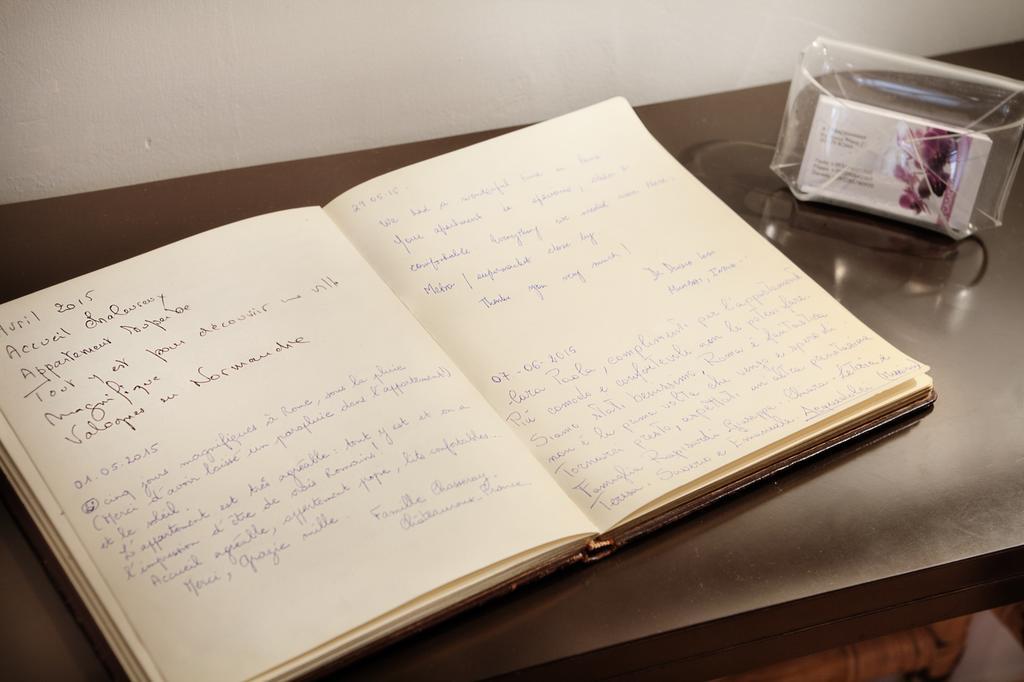 Avril 2015
Accueil chaleureux
Appartement superbe
Tout y est pour découvrir une ville
magnifique
Valognes en Normandie
01.05.2015
cinq jours magnifiques à Rome, sous la pluie
(Merci d'avoir laissé un parapluie dans l'appartement)
et le soleil.
L'appartement est très agréable: tout y est et on a
l'impression d'être de vrais Romains!
Accueil agréable, appartement propre, lits confortables.
Merci, Grazie mille. Famille Chasseray
Châteauroux - France
29.05.15.
We had a wonderful time in
Your apartment is spacious, clean &
comfortable. Everything we needed was there.
Metro / supermarket close by
Thank you very much!
07-06-2015
Cara Paola, complimenti per l'appartamento
Più comodo e confortevole non lo potevi fare.
Siamo stati benissimo, Roma è fantastica
non è la prima volta che vengo e spero di
Tornare presto, aspettati un'altra prenotazione
Famiglia Giuseppe Chiara Letizia di
Saverio e Emanuele Acquedolci Messina